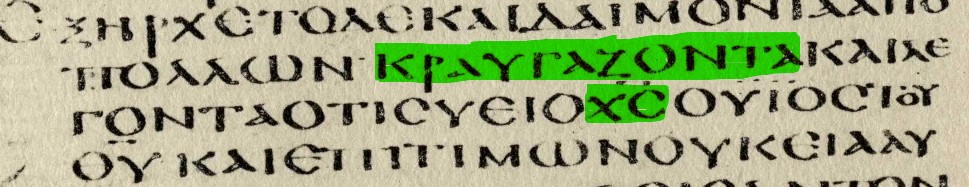 ΕΞΗΡΧΕΤΟΔΕΚΑΙΔΑΙΜΟΝΙΑΑΠΟ
ΠΟΛΛΩΝ·ΚΡΑΥΓΑΖΟΝΤΑΚΑΙΛΕ
ΓΟΝΤΑΟΤΙϹΥΕΙΟΧϹΟΥΪΟϹΤΟΥ
ΘΥΚΑΙΕΠΙΤΙΜΩΝΟΥΚΕΙΑΑΥ